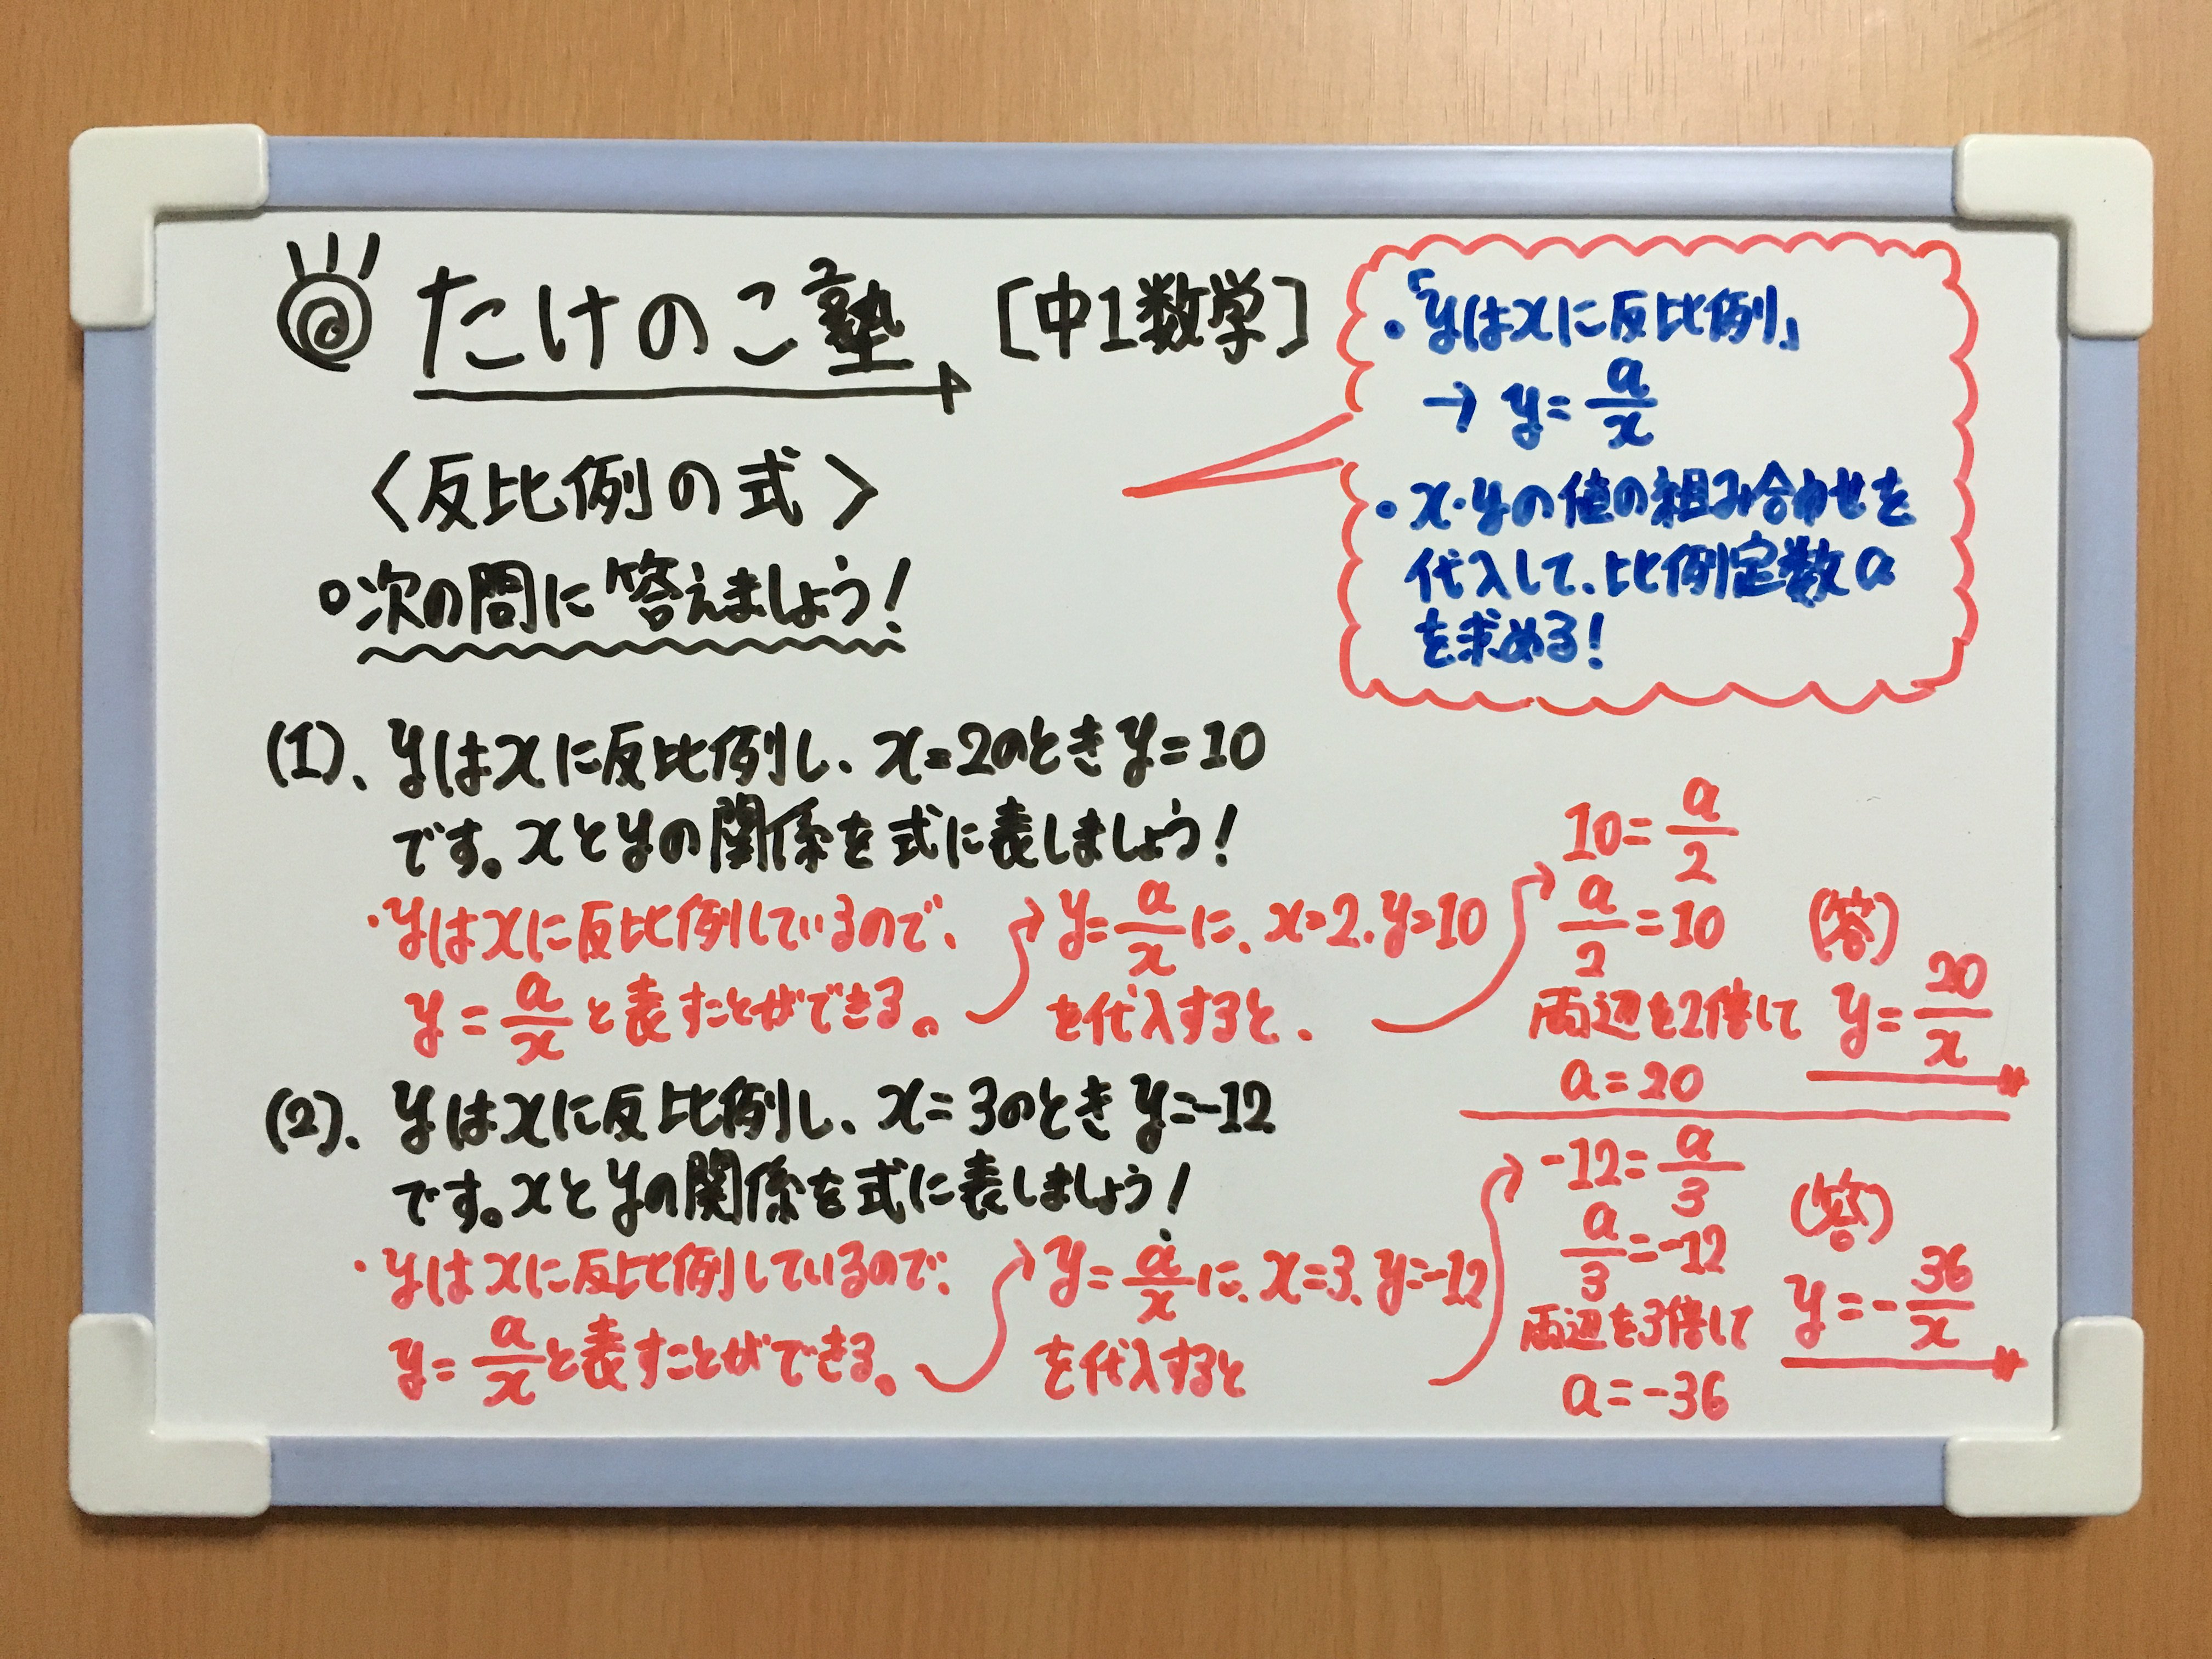 たけのこ塾 [中1数学]
・「yはxに反比例」
→ y=a/x
・x・yの値の組み合わせを
代入して、比例定数a
を求める!
〈反比例の式〉
○次の問に答えましょう!
(1)、yはxに反比例し、x=2のときy=10
です。xとyの関係を式に表しましょう!
・yはxに反比例しているので、
y=a/xと表すことができる。
y=a/xに、x=2、y=10
を代入すると、
10=a/2
a/2=10
両辺を2倍して
a=20
(答)
y=20/x
(2)、yはxに反比例し、x=3のときy=-12
です。xとyの関係を式に表しましょう!
・yはxに反比例しているので、
y=a/xと表すことができる。
y=a/xに、x=3、y=-12
を代入すると
-12=a/3
a/3=-12
両辺を3倍して
a=-36
(答)
y=-36/x